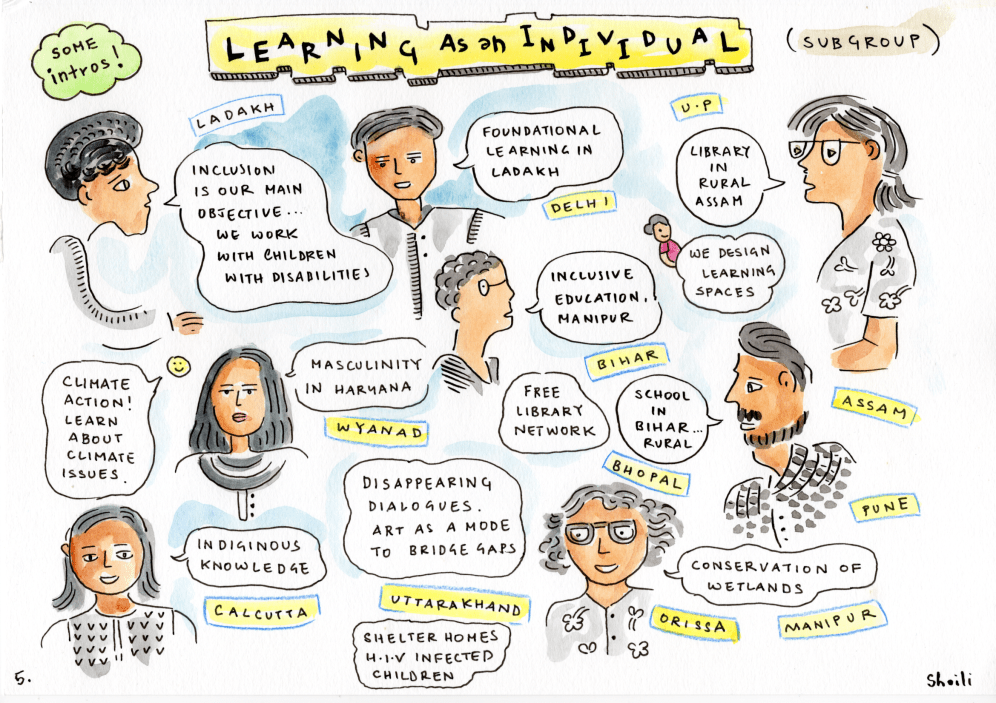 SOME
intros!
LEARNING As an INDIVIDUAL
(SUBGROUP)
LADAKH
INCLUSION
IS OUR MAIN
OBJECTIVE...
WE WORK
WITH CHILDREN
WITH DISABILITIES
FOUNDATIONAL
LEARNING IN
LADAKH
U.P
LIBRARY
IN
RURAL
ASSAM
DELHI
WE DESIGN
LEARNING
SPACES
INCLUSIVE
EDUCATION,
MANIPUR
BIHAR
CLIMATE
ACTION!
LEARN
ABOUT
CLIMATE
ISSUES.
MASCULINITY
IN HARYANA
WYANAD
FREE
LIBRARY
NETWORK
SCHOOL
IN
BIHAR...
RURAL
ASSAM
BHOPAL
PUNE
DISAPPEARING
DIALOGUES.
ART AS A MODE
TO BRIDGE GAPS
INDIGINOUS
KNOWLEDGE
CALCUTTA
UTTARAKHAND
CONSERVATION OF
WETLANDS
ORISSA
MANIPUR
SHELTER HOMES
H.I.V INFECTED
CHILDREN
5.
Shaili